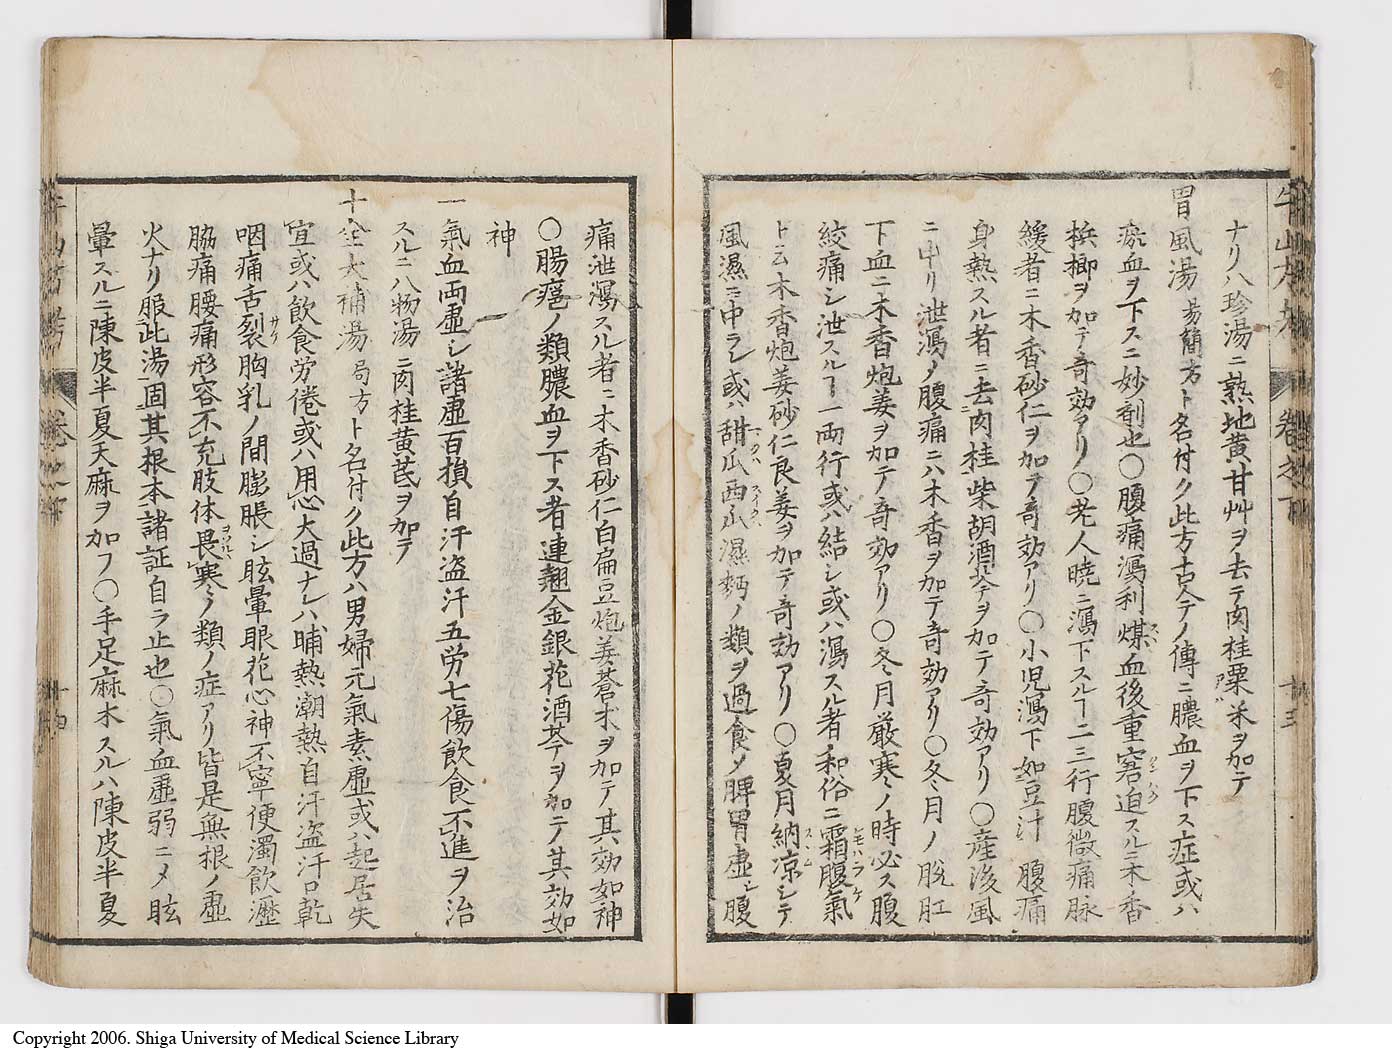 ナリ八珍湯ニ熟地黄甘艸ヲ去テ肉桂粟米ヲ加テ
胃風湯 易簡方ト名付ク此方古今ノ傳ニ膿血ヲ下ス症或ハ
瘀血ヲ下スニ妙剤也〇腹痛瀉利煤血後重窘迫スルニ木香
梹榔ヲ加テ奇効アリ〇老人暁ニ瀉下スルヿ二三行腹微痛脉
緩者ニ木香砂仁ヲ加テ奇効アリ〇小児瀉下如豆汁腹痛
身熱スル者ニ去肉桂柴胡酒芩ヲ加テ奇効アリ〇産後風
ニ中リ泄瀉ノ腹痛ニハ木香ヲ加テ奇効アリ〇冬月ノ脱肛
下血ニ木香炮姜ヲ加テ奇効アリ〇冬月厳寒ノ時必ス腹
絞痛シ泄スルヿ一両行或ハ結シ或ハ瀉スル者和俗ニ霜腹氣
ト云木香炮姜砂仁良姜ヲ加テ奇効アリ〇夏月納凉シテ
風濕ニ中ラレ或ハ甜瓜西瓜濕麪ノ類ヲ過食メ脾胃虚シ腹
痛泄瀉スル者ニ木香砂仁白扁豆炮姜蒼朮ヲ加テ其効如神
〇腸癰ノ類膿血ヲ下ス者連翹金銀花酒芩ヲ加テ其効如
神
一氣血両虚シ諸虚百損自汗盗汗五労七傷飲食不進ヲ治
スルニ八物湯ニ肉桂黄芪ヲ加テ
十全大補湯 局方ト名付ク此方ハ男婦元氣素虚或ハ起居失
宜或ハ飲食労倦或ハ用心大過ナレハ晡熱潮熱自汗盗汗口乾
咽痛舌裂胸乳ノ間膨脹シ眩暈眼花心神不寧便濁飲瀝
脇痛腰痛形容不充肢体畏寒ノ類ノ症アリ皆是無根ノ虚
火ナリ服此湯固其根本諸証自ラ止也〇氣血虚弱ニメ眩
暈スルニ陳皮半夏天麻ヲ加フ〇手足麻木スルハ陳皮半夏